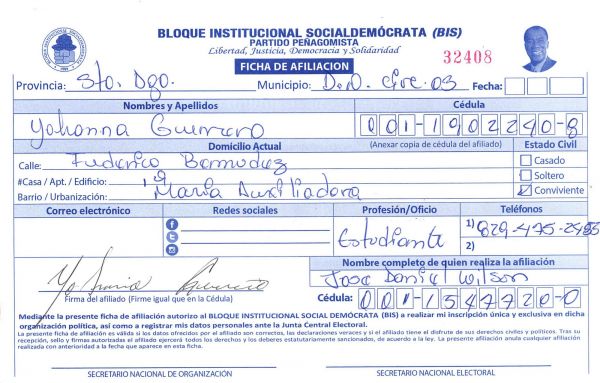 BLOQUE INSTITUCIONAL SOCIALDEMÓCRATA (BIS)
PARTIDO PEÑAGOMISTA
Libertad, Justicia, Democracia y Solidaridad
32408
FICHA DE AFILIACION
Provincia: Sto. Dgo. Municipio: D.N. Circ. 03 Fecha:
Nombres y Apellidos Cédula
Yohanna Guerrero 001-1902240-8
Domicilio Actual (Anexar copia de cédula del afiliado) Estado Civil
Calle: Federico Bermudez Casado
#Casa / Apt. / Edificio: 19 Soltero
Barrio / Urbanización: Maria Auxiliadora Conviviente
Correo electrónico Redes sociales Profesión/Oficio Teléfonos
Estudiante 1) 829-475-2485
2)
Nombre completo de quien realiza la afiliación
Jose Daniel Wilson
Firma del afiliado (Firme igual que en la Cédula) Cédula: 001-1547720-0
Mediante la presente ficha de afiliación autorizo al BLOQUE INSTITUCIONAL SOCIAL DEMÓCRATA (BIS) a realizar mi inscripción única y exclusiva en dicha
organización política, así como a registrar mis datos personales ante la Junta Central Electoral.
La presente ficha de afiliación es válida si los datos ofrecidos por el afiliado son correctos, las declaraciones veraces y si el afiliado tiene el disfrute de sus derechos civiles y políticos. Tras su
recepción, sello y firmas autorizadas el afiliado ejercerá todos los derechos y los deberes estatutariamente sancionados, de acuerdo a la ley. La presente afiliación anula cualquier afiliación
realizada con anterioridad a la fecha que aparece en esta ficha.
SECRETARIO NACIONAL DE ORGANIZACIÓN SECRETARIO NACIONAL ELECTORAL